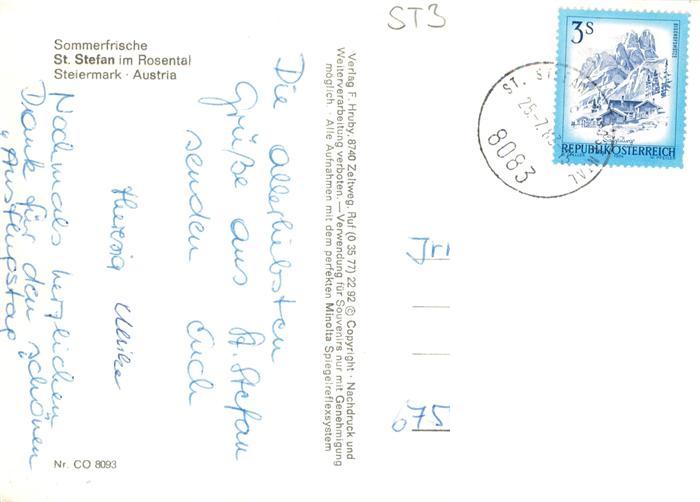 ST3
Sommerfrische
St. Stefan im Rosental
Steiermark · Austria
Die allerliebsten
Grüße aus St. Stefan
senden Euch
Theresia Ulrike
Nochmals herzlichen
Dank für den schönen
"Ausflugstag"
Nr. CO 8093
Verlag F. Hruby, 8740 Zeltweg, Ruf (0 35 77) 22 92 © Copyright · Nachdruck und
Weiterverarbeitung verboten. — Verwendung für Souvenirs nur mit Genehmigung
möglich. · Alle Aufnahmen mit dem perfekten Minolta Spiegelreflexsystem
3S
REPUBLIK ÖSTERREICH
ST. STEFAN
8083
675